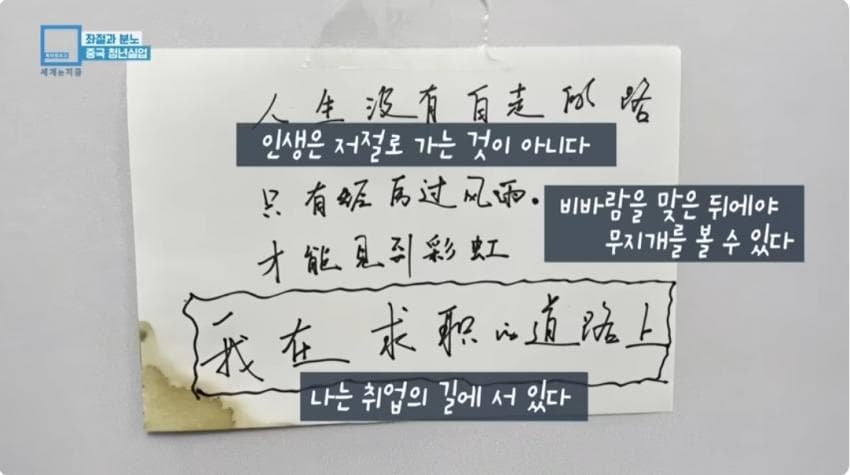 좌절과 분노
중국 청년실업
세계는지금
人生没有自走的路
인생은 저절로 가는 것이 아니다
只有经历过风雨。
비바람을 맞은 뒤에야
무지개를 볼 수 있다
才能见到彩虹
我在求职的道路上
나는 취업의 길에 서 있다